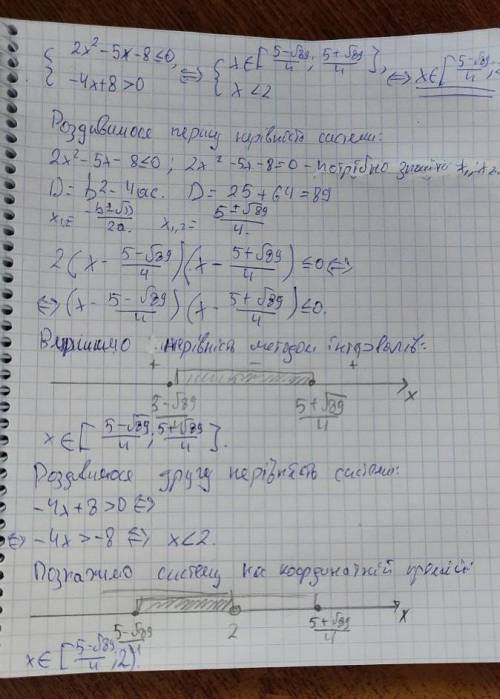 { 2x² - 5x - 8 ≤ 0, ⇔ { x ∈ [ (5-√89)/4 ; (5+√89)/4 ], ⇔ x ∈ [ (5-√89)/4 ;
{ -4x + 8 > 0 { x < 2
Роздивимося першу нерівність системи:
2x² - 5x - 8 ≤ 0 ; 2x² - 5x - 8 = 0 - потрібно знайти x₁, x₂
D = b² - 4ac. D = 25 + 64 = 89
x₁,₂ = (-b ± √D)/2a. x₁,₂ = (5 ± √89)/4.
2 (x - (5-√89)/4) (x - (5+√89)/4) ≤ 0 ⇔
⇔ (x - (5-√89)/4) (x - (5+√89)/4) ≤ 0.
Вирішимо нерівність методом інтервалів:
+ - +
(5-√89)/4 (5+√89)/4 x
x ∈ [ (5-√89)/4 ; (5+√89)/4 ].
Роздивимося другу нерівність системи:
-4x + 8 > 0 ⇔
⇔ -4x > -8 ⇔ x < 2.
Позначимо систему на координатній прямій:
(5-√89)/4 2 (5+√89)/4 x
x ∈ [ (5-√89)/4 ; 2).